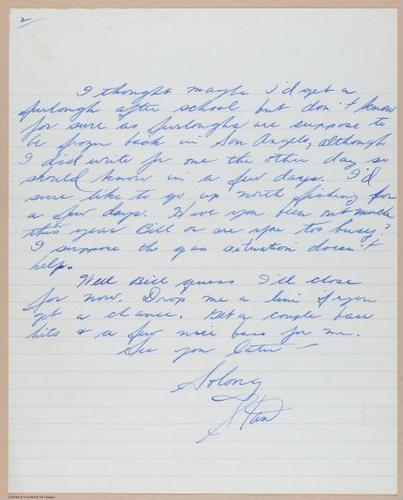 2
I thought maybe I'd get a
furlough after school but don't know
for sure as furloughs are suppose to
be frozen back in San Angelo, although
I did write for one the other day so
should know in a few days. I'd
sure like to go up north fishing for
a few days. Have you been out much
this year Bill or are you too busy?
I suppose the gas situation doesn't
help.
Well Bill guess I'll close
for now. Drop me a line if you
get a chance. Get a couple base
hits & a few nice bass for me.
See you later –
So long
Stan